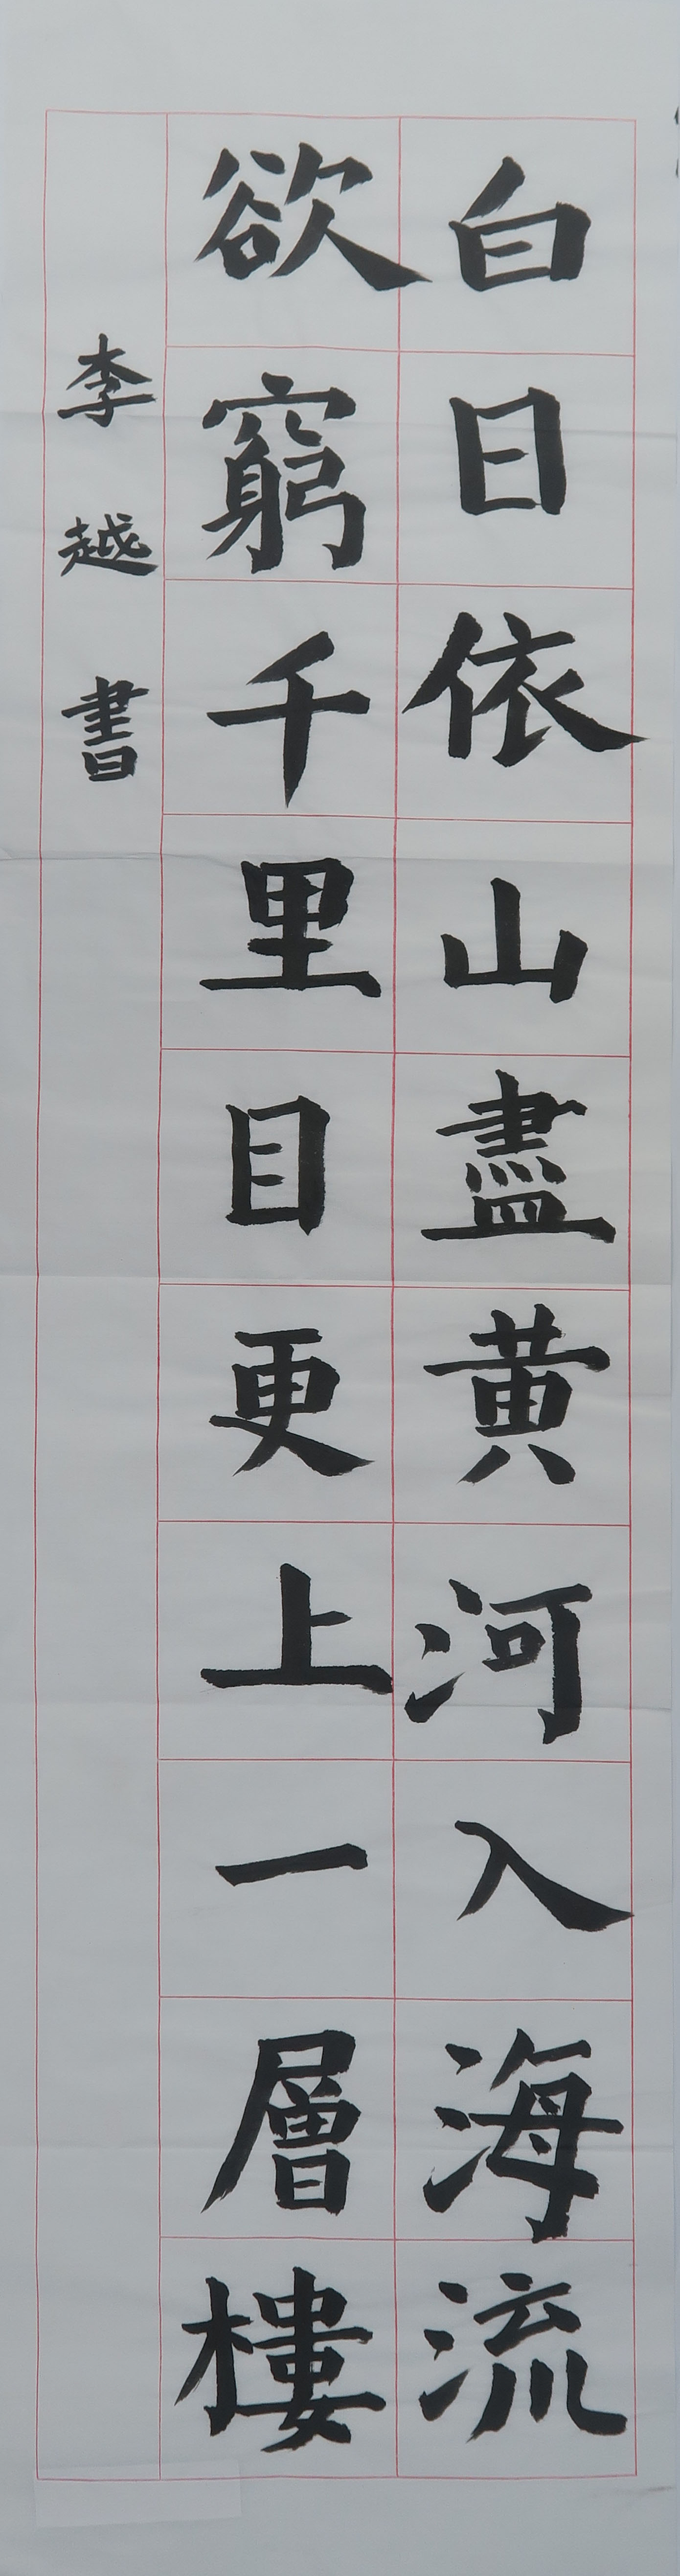 白日依山盡黄河入海流
欲窮千里目更上一層樓
李越書